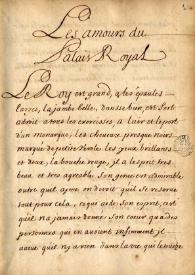 Les amours du
Palais Royal
Le Roy est grand, a les épaules
larges, la jambe belle, danse bien, est fort
adroit a tous les exercices, a l'air et le port
d'un monarque, les cheveux presque noirs,
marqué de petite verole les yeux brillants
et doux, la bouche rouge, et a l'esprit tres
beau et tres agreable. Son genie est admirable
outre qu'il ayme on diroit qu'il se reserve
tout pour cela,
qu'il n'a jamais donné son coeur qu'a des
personnes qui en avoient infiniment, il
avoue qu'il n'y a rien dans la vie qui le touche